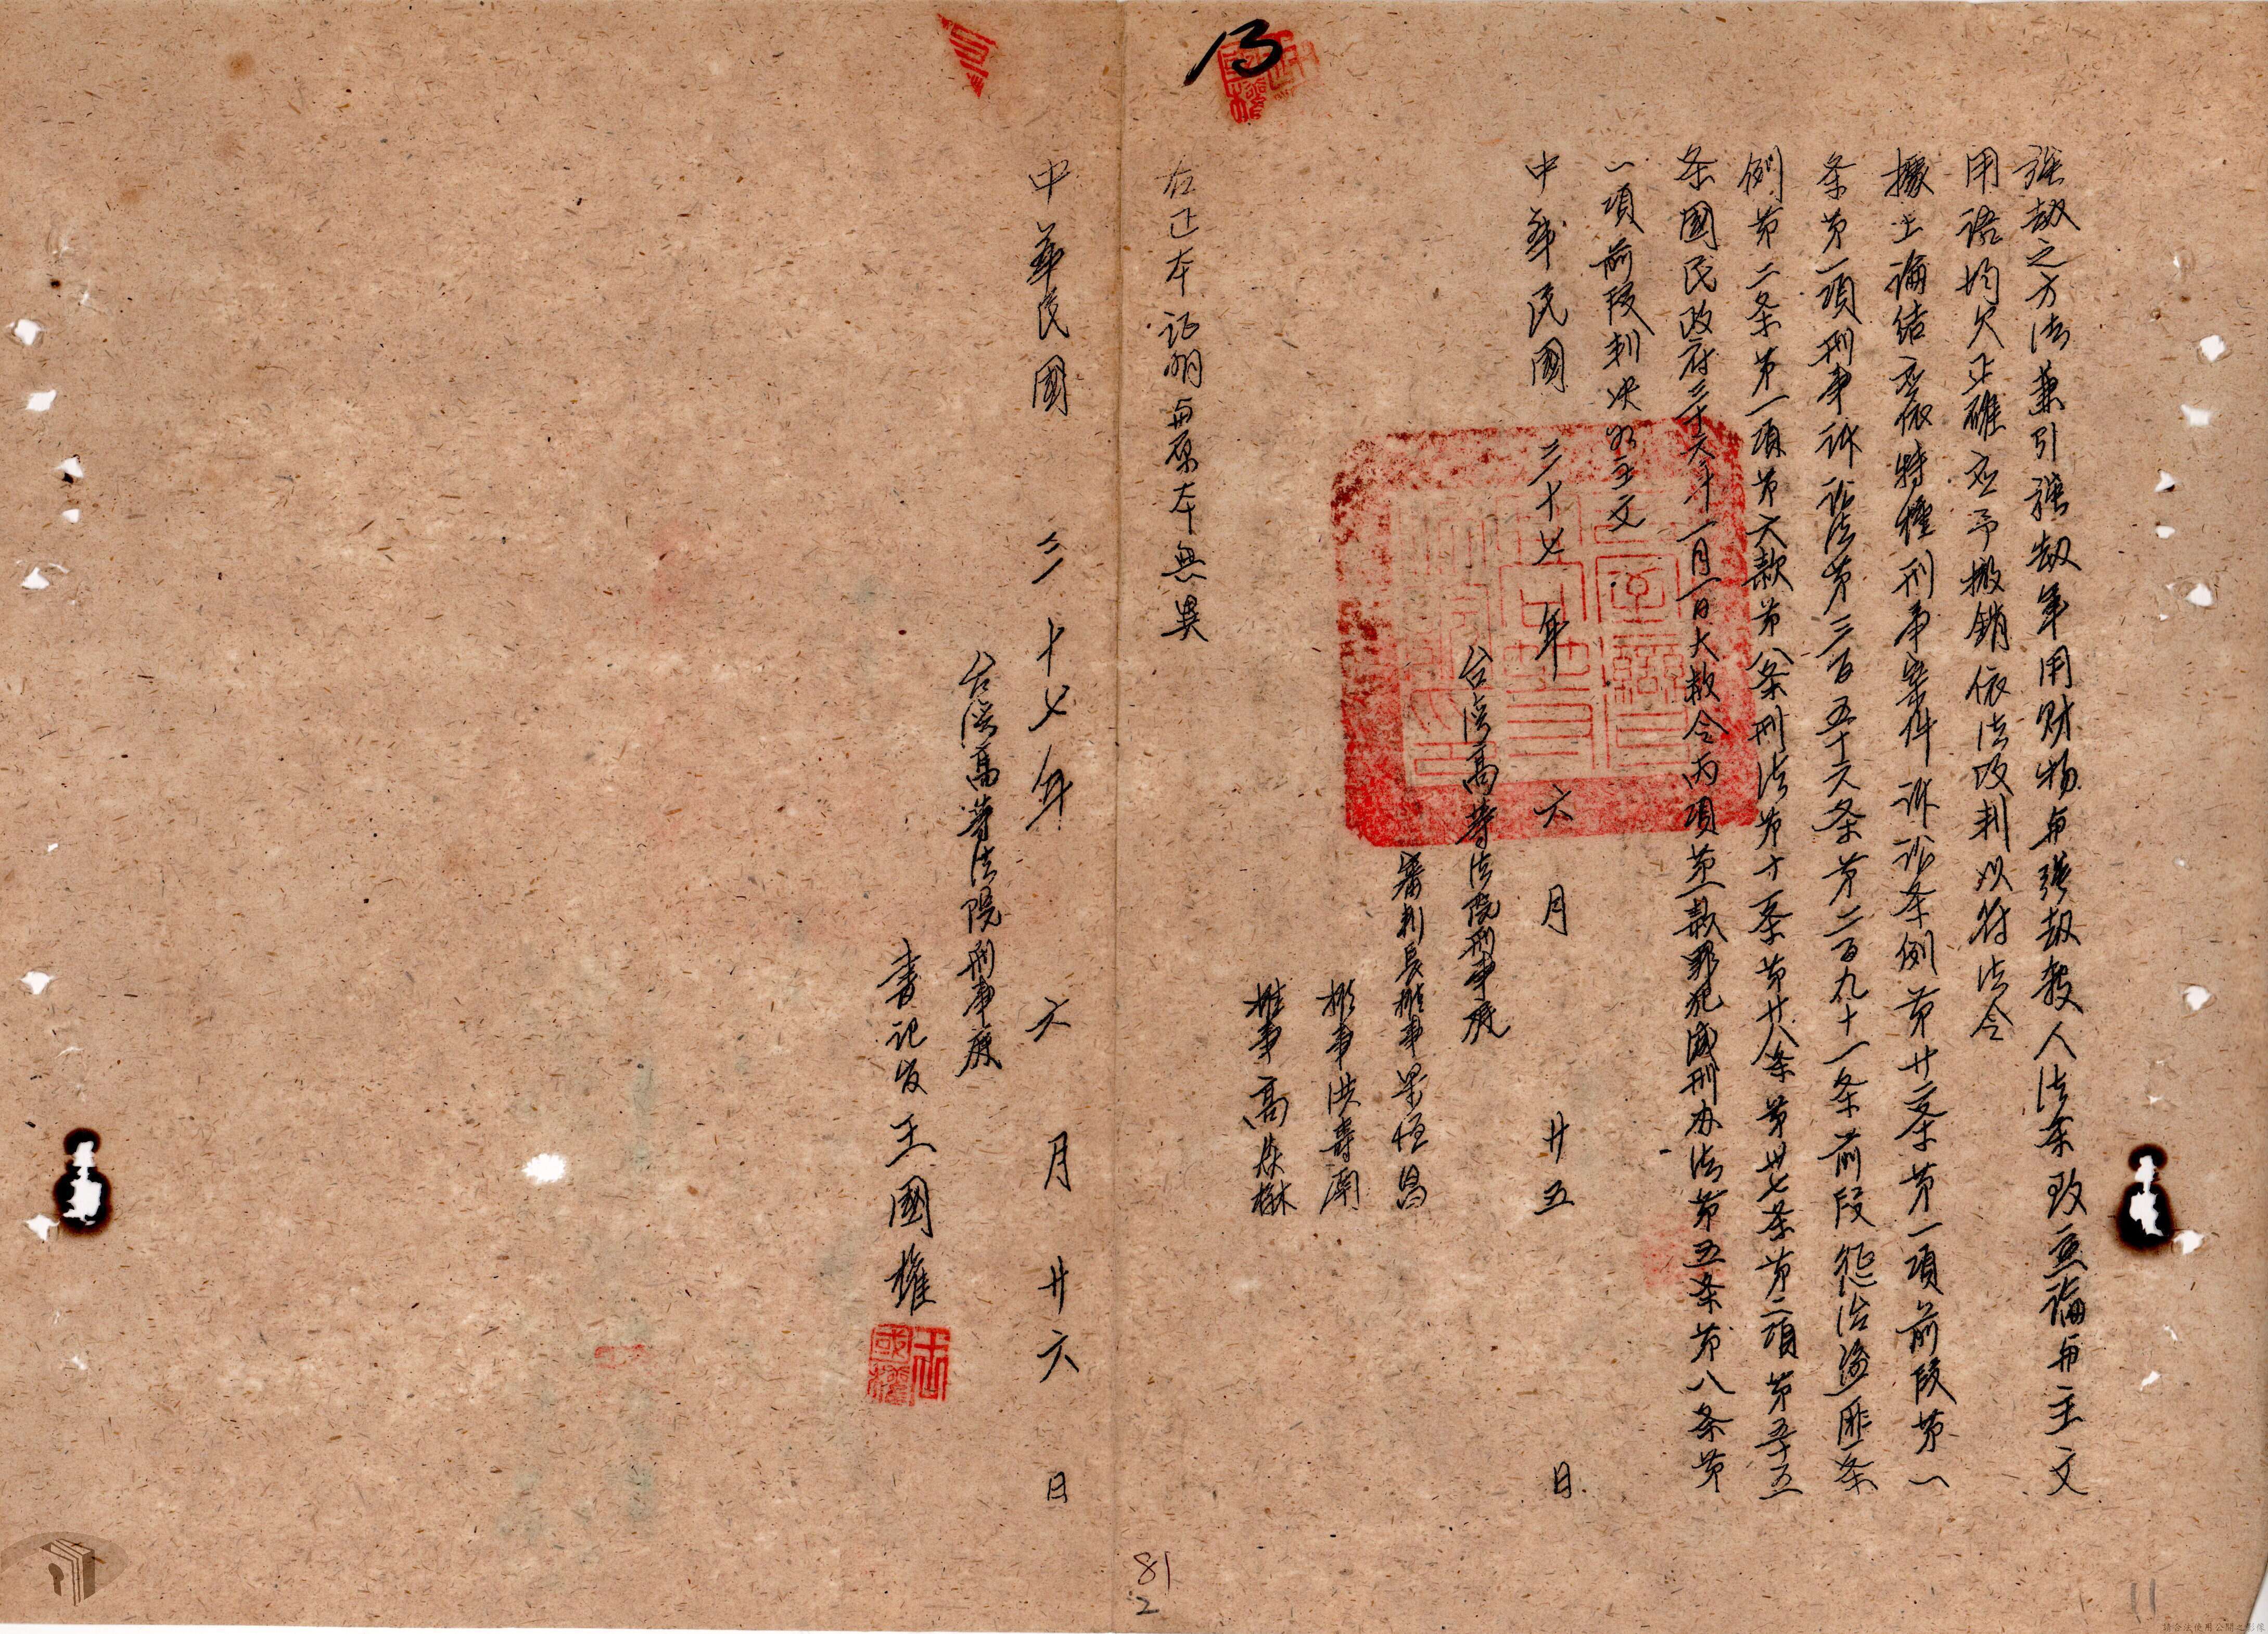 13
强劫之方法兼引强劫軍用财物与强劫殺人法条致無論与主文
用語均欠正確应予撤銷依法改判以符法令
據上論结应依特種刑事案件訴訟条例第廿一条第一項前段第一
条第一項刑事訴訟法第三百五十六条第二百九十一条前段懲治盗匪条
例第二条第一項第六款第八条刑法第十一条第廿八条第卅七条第二項第五十五
条國民政府三十六年一月一日大赦令丙項第一款罪犯减刑办法第五条第八条第
一項前段判决如主文
中華民國三十七年六月廿五日
台湾高等法院刑事庭
審判長推事梁恒昌
推事洪壽南
推事高
右正本証明与原本無異
中華民國三十七年六月廿六日
台湾高等法院刑事庭
書记官王國權
王國權
81
2
11